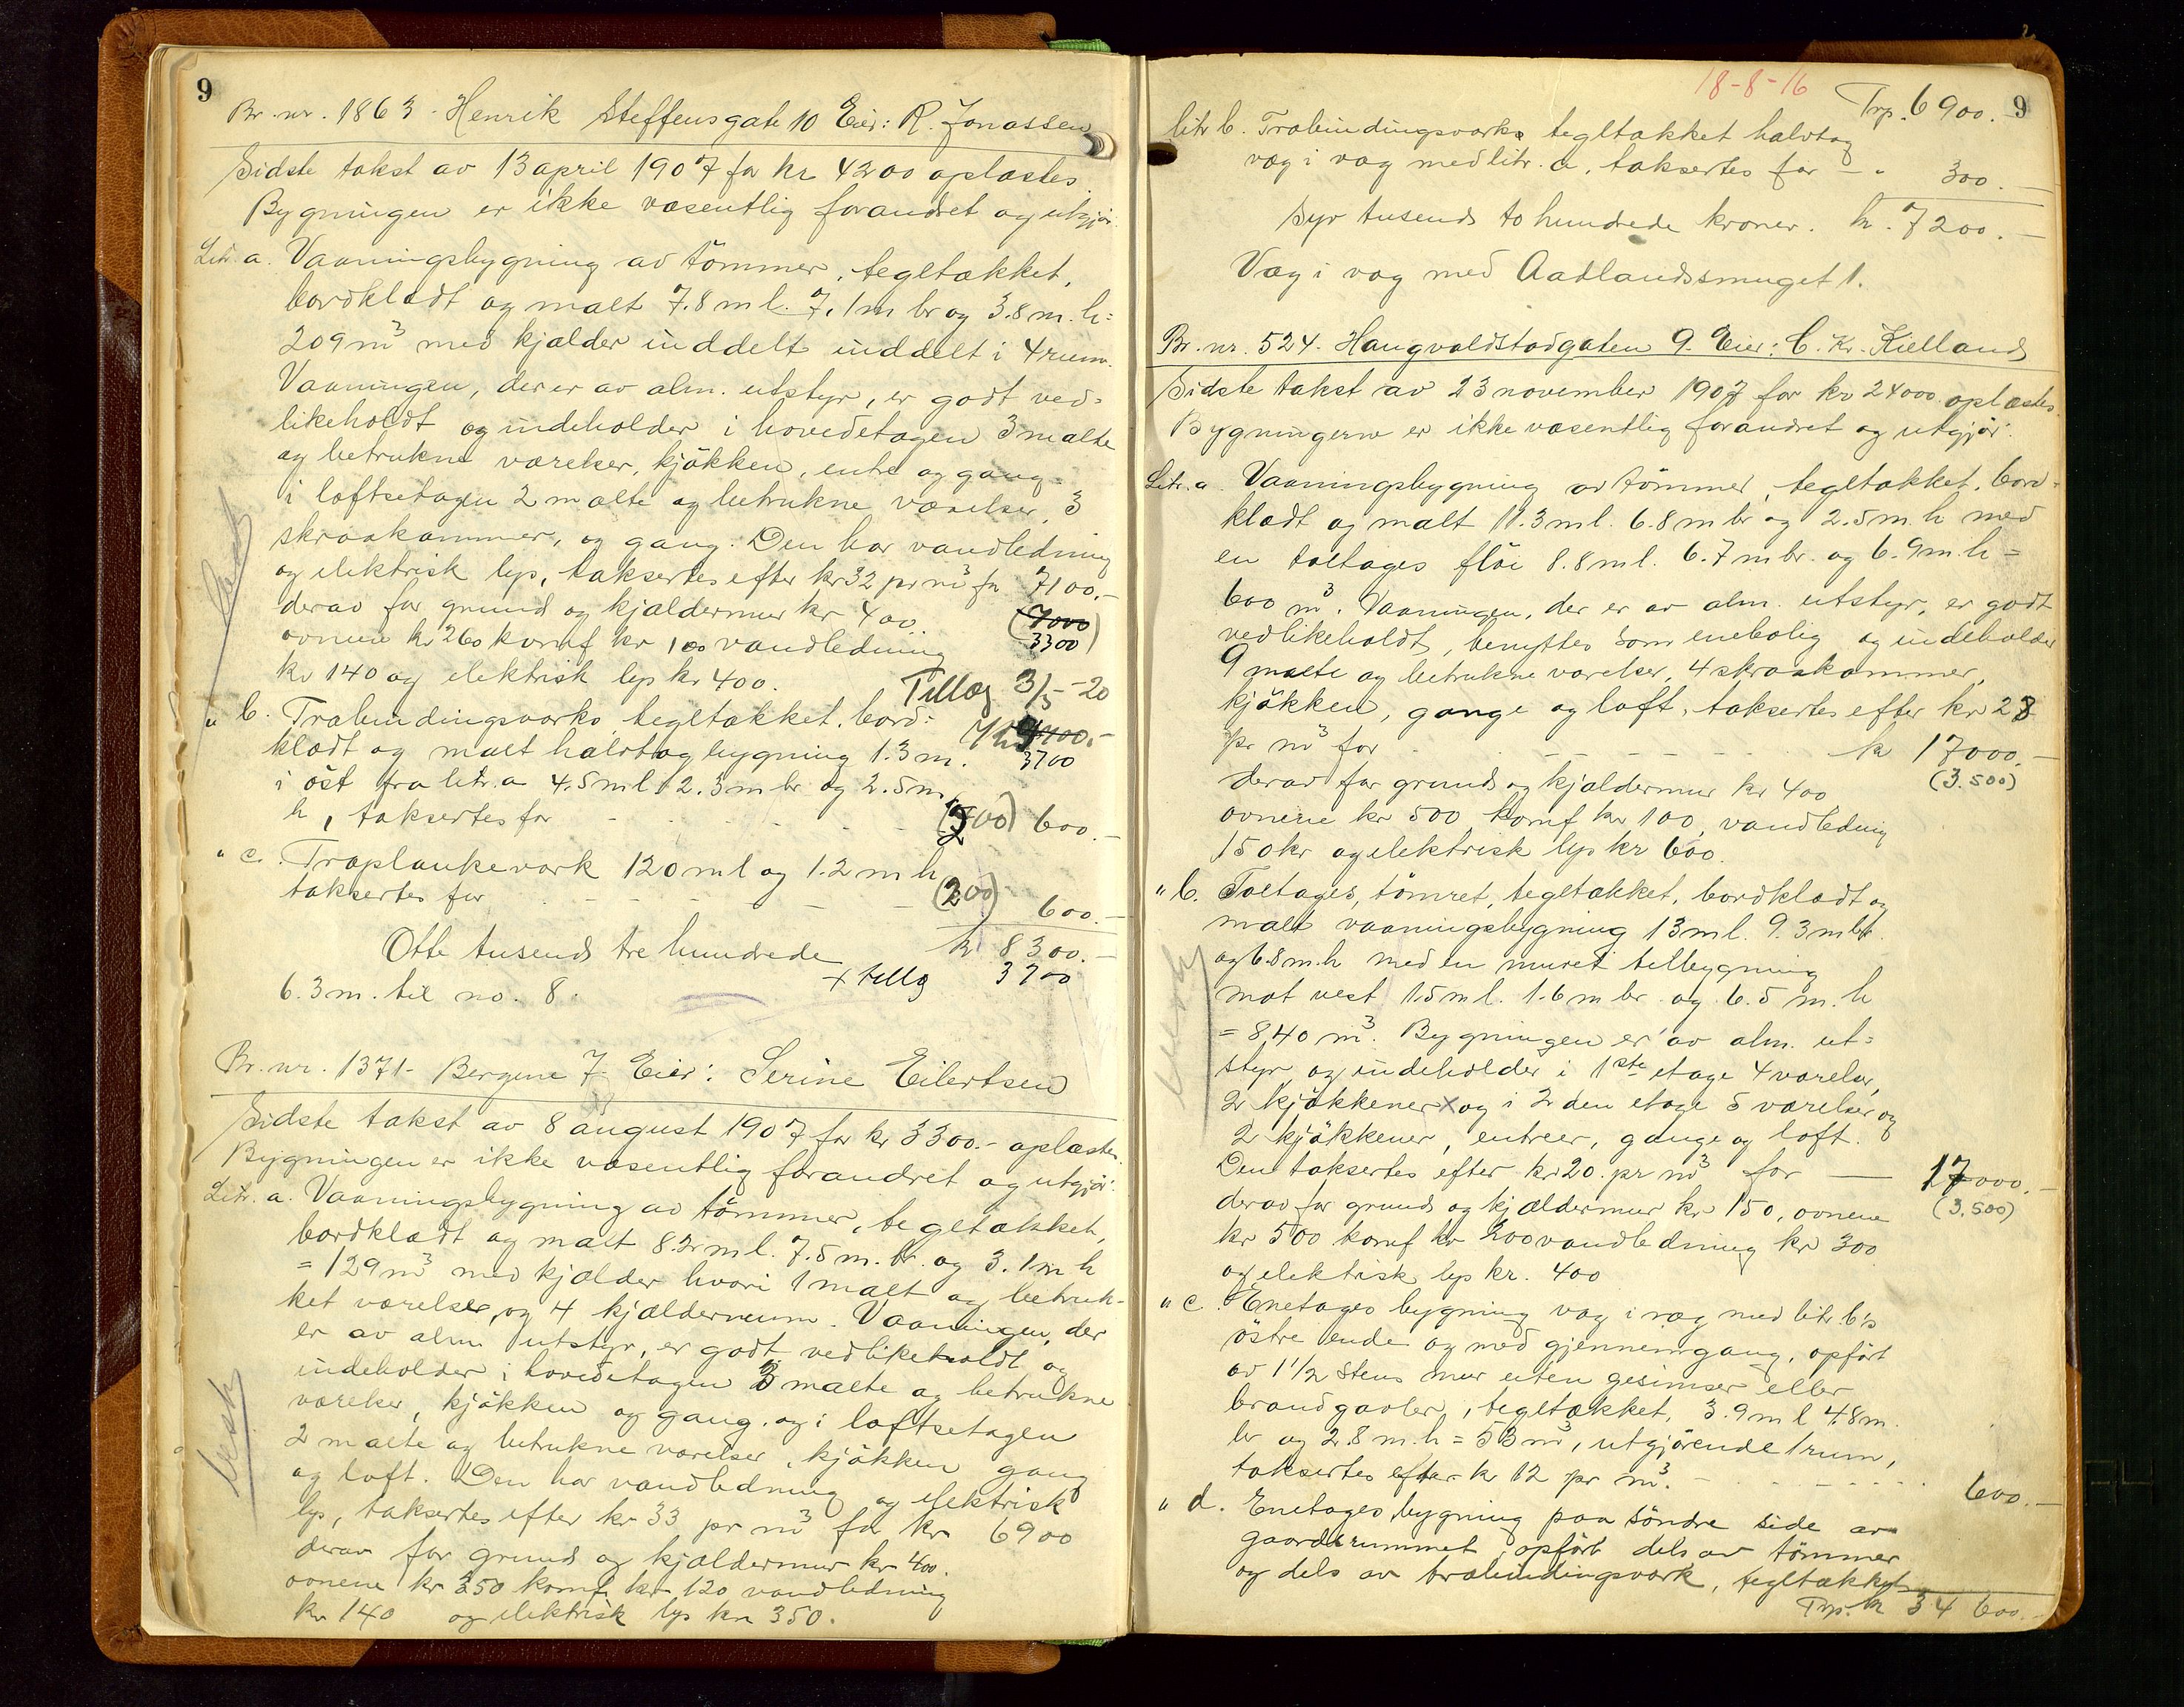 9
Br. nr. 1863 - Henrik Steffensgate 10 Eier: R. Jonassen
Sidste takst av 13 april 1907 for kr 4200 oplæstes.
Bygningen er ikke væsentlig forandret og utgjør:
Litr. a. Vaaningsbygning av tömmer, tegltækket,
bordklædt og malt 7.8 m l. 7.1 m br og 3.8 m. h =
209 m³ med kjælder inddelt inddelt i 4 rum.
Vaaningen, der er av alm. utstyr, er godt ved=
likeholdt og indeholder i hovedetagen 3 malte
og betrukne værelser, kjökken, entre og gang =
i loftsetagen 2 malte og betrukne værelser, 3
skraakammer, og gang. Den har vandledning
og elektrisk lys, taksertes efter kr 32 pr m³ for 7100.-
derav for grund og kjældermur kr 400 (7000
ovnene kr 260 komf kr 100 vandledning 3300)
kr 140 og elektrisk lys kr 400. Tillæg 3/5-20
" b. Træbindingsverks, tegltækket, bord=
klædt og malt halvtag bygning 1.3 m. 3700
i öst fra litr. a 4.5 m l 2.3 m br og 2.5 m
h, taksertes for - - - - (300) 600.-
" c. Træplankeverk 120 m l og 1.2 m h
taksertes for - - - - (200) 600.-
Otte tusend tre hundrede kr 8300.-
+ tillæg 3700
6.3 m. til no. 8.
Br. nr. 1371 - Bergene 7. Eier: Serine Eilertsen
Sidste takst av 8 august 1907 for kr 3300.- oplæstes.
Bygningen er ikke væsentlig forandret og utgjör:
Litr. a. Vaaningsbygning av tömmer, tegltækket,
bordklædt og malt 8.2 m l. 7.5 m. br. og 3.1 m h
= 129 m³ med kjælder hvori 1 malt og betruk-
ket værelser, og 4 kjælderrum. Vaaningen, der
er av alm utstyr, er godt vedlikeholdt og
indeholder i hovedetagen 3 malte og betrukne
værelser, kjökken og gang. og i loftsetagen
2 malte og betrukne værelser, kjökken gang
og loft. Den har vandledning og elektrisk
lys, taksertes efter kr 33 pr m³ for kr 6900
derav for grund og kjældermur kr 400.
ovnene kr 350 komf. kr 120 vandledning
kr 140 og elektrisk lys kr 350.
besk
18-8-16 Trp. 6900. 9
litr b. Træbindingsverks tegltækket halvtag
væg i væg med litr. a, taksertes for - " 300.-
Syv tusend to hundrede kroner. kr. 7200.-
Væg i væg med Aadlandssmuget 1.
Br. nr. 524. Haugvaldstadgaten 9. Eier: C. Kr. Kielland
Sidste takst av 23 november 1907 for kr 24000 oplæstes.
Bygningerne er ikke væsentlig forandret og utgjör:
Litr. a Vaaningsbygning av tömmer, tegltækket, bord=
klædt og malt 11.3 m l. 6.8 m br og 2.5 m h med
en toetages flöi 8.8 m l. 6.7 m br. og 6.9 m. h =
600 m³. Vaaningen, der er av alm. utstyr, er godt
vedlikeholdt, benyttes som enebolig og indeholder
9 malte og betrukne værelser, 4 skraakammer,
kjökken, gange og loft, taksertes efter kr 28
pr m³ for - - - - kr 17000.-
derav for grund og kjældermur kr 400 (3.500)
ovnene kr 500 komf kr 100, vandledning
150 kr og elektrisk lys kr 600.
" b. Toetages, tömret, tegltækket, bordklædt og
malt vaaningsbygning 13 m l. 9.3 m br.
og 6.8 m. h med en muret tilbygning
mot vest 1.5 m l. 1.6 m br. og 6.5 m. h
= 840 m³. Bygningen er av alm. ut=
styr og indeholder i 1ste etage 4 værelser,
2 kjökkener x og i 2den etage 5 værelser og
2 kjökkener, entreer, gange og loft.
Den taksertes efter kr 20. pr m³ for — 17000.-
derav for grund og kjældermur kr 150, ovnene (3.500)
kr 500 komf kr 200 vandledning kr 300
og elektrisk lys kr. 400
" c. Enetages bygning væg i væg med litr. b's
östre ende og med gjennemgang, opfört
av 1 1/2 stens mur uten gesimser eller
brandgavler, tegltækket, 3.9 m l 4.8 m.
br og 2.8 m. h = 53 m³, utgjörende 1 rum,
taksertes efter kr 12 pr m³. - - - - 600.-
" d. Enetages bygning paa söndre side av
gaardsrummet, opfört dels av tömmer
og dels av træbindingsverk, tegltækket
Trp. kr 34 600.-